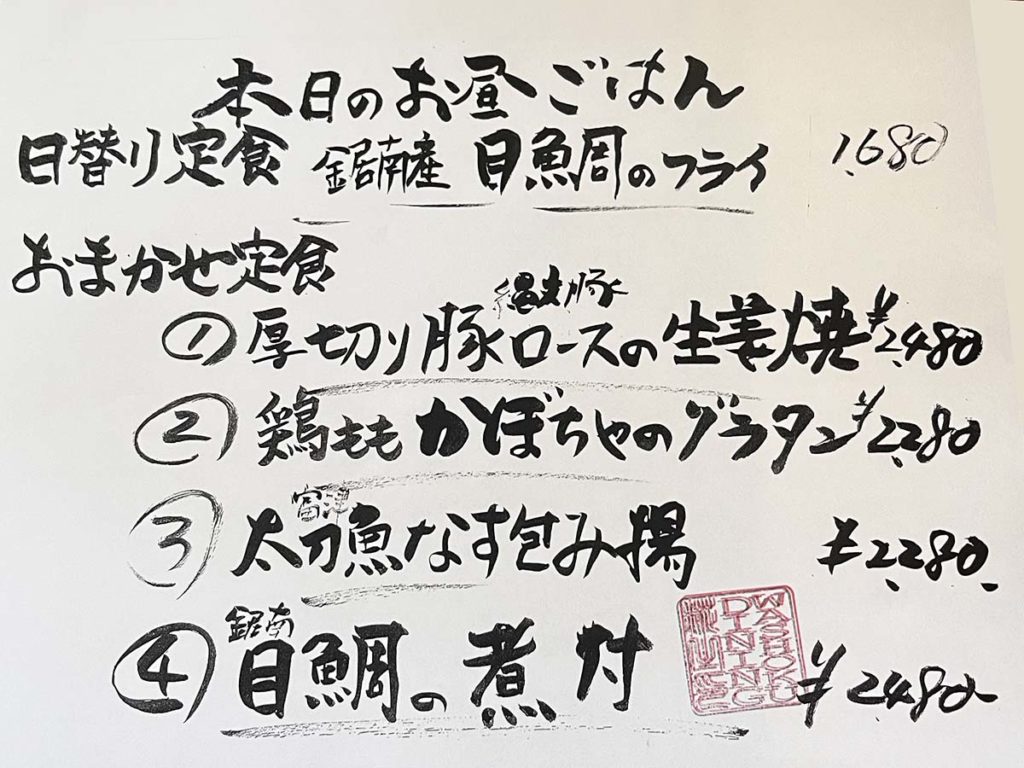 本日のお昼ごはん
日替り定食 鋸南産 目鯛のフライ 1.680
おまかせ定食
豚
① 厚切り豚ロースの生姜焼 ¥2.480
② 鶏もも かぼちゃのグラタン ¥2.280
富津
③ 太刀魚なす包み揚 ¥2.280.
鋸南
④ 目鯛の煮付 ¥2480
WASHOKU
DINING